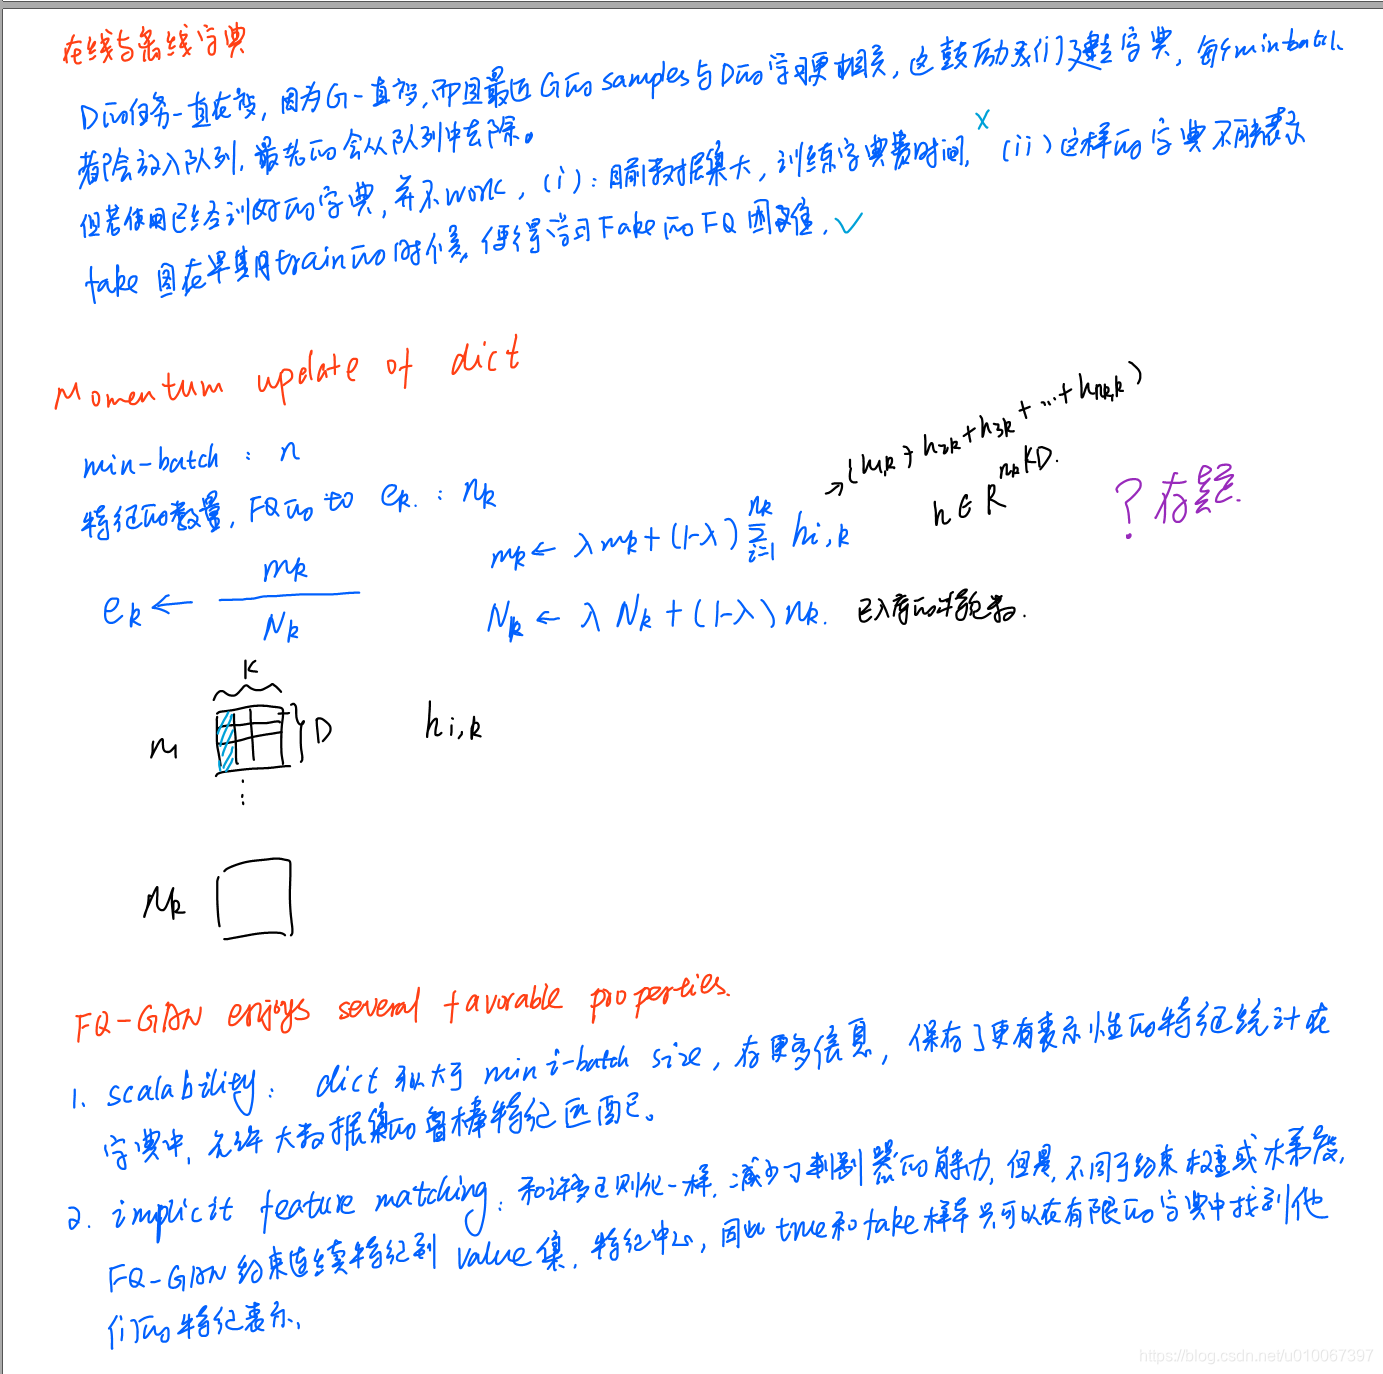 在线与离线字典
D的任务一直在变，因为G一直变，而且最近G的samples与D的学习更相关，这鼓励我们建立字典，每个minbatch
都会放入队列，最先的会从队列中去除。
但若使用已经训好的字典，并不work，(i)：目前数据集大，训练字典费时间， × (ii)这样的字典不能表示
fake 图在早期train的时候，使得学习Fake的FQ困难， ✓
Momentum update of dict
min-batch : n
特征的数量，FQ的 to e_k : n_k
e_k ← m_k / N_k
m_k ← λ m_k + (1-λ) Σ_{i=1}^{n_k} h_{i,k}
→ (h_{1,k} + h_{2k} + h_{3k} + ... + h_{n_k,k})
h ∈ R^{n_k KD}.
? 存疑.
N_k ← λ N_k + (1-λ) n_k.
K
n
D
h_{i,k}
⋮
n_k
FQ-GAN enjoys several favorable properties.
1. scalability: dict 可以大于 mini-batch size, 存更多信息，保存了更有表示性的特征统计在
字典中，允许大数据集的鲁棒特征匹配。
2. implicit feature matching: 和许多正则化一样，减少了判别器的能力，但是，不同于约束权重或大梯度，
FQ-GAN 约束连续特征到 value集，特征中心，因此 true和fake样本只可以在有限的字典中找到他
们的特征表示，
https://blog.csdn.net/u010067397